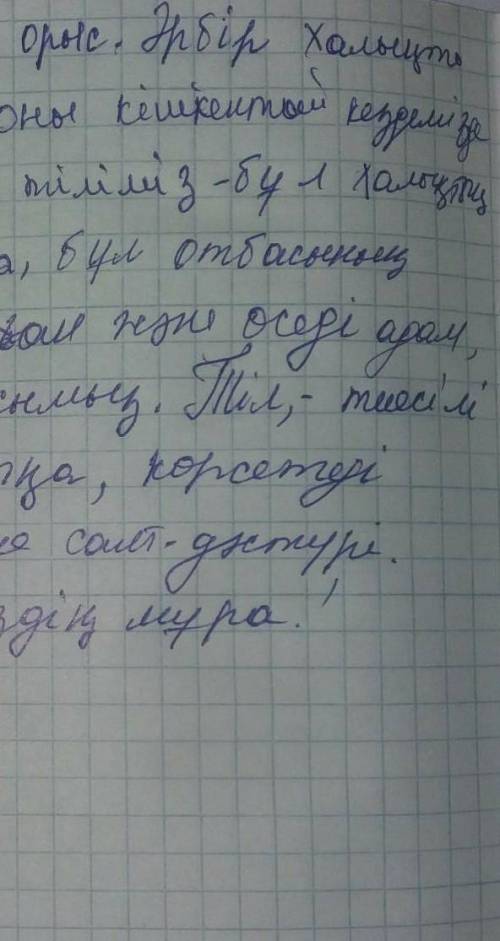 орыс. Әрбір халықты
оны кішкентай кезделізде
тіліміз - бұл халықтың
а, бұл отбасының
және өседі адам,
Тіл, - тиесілі
қа, көрсетеді
салт-дәстүрі.
здің мұра!